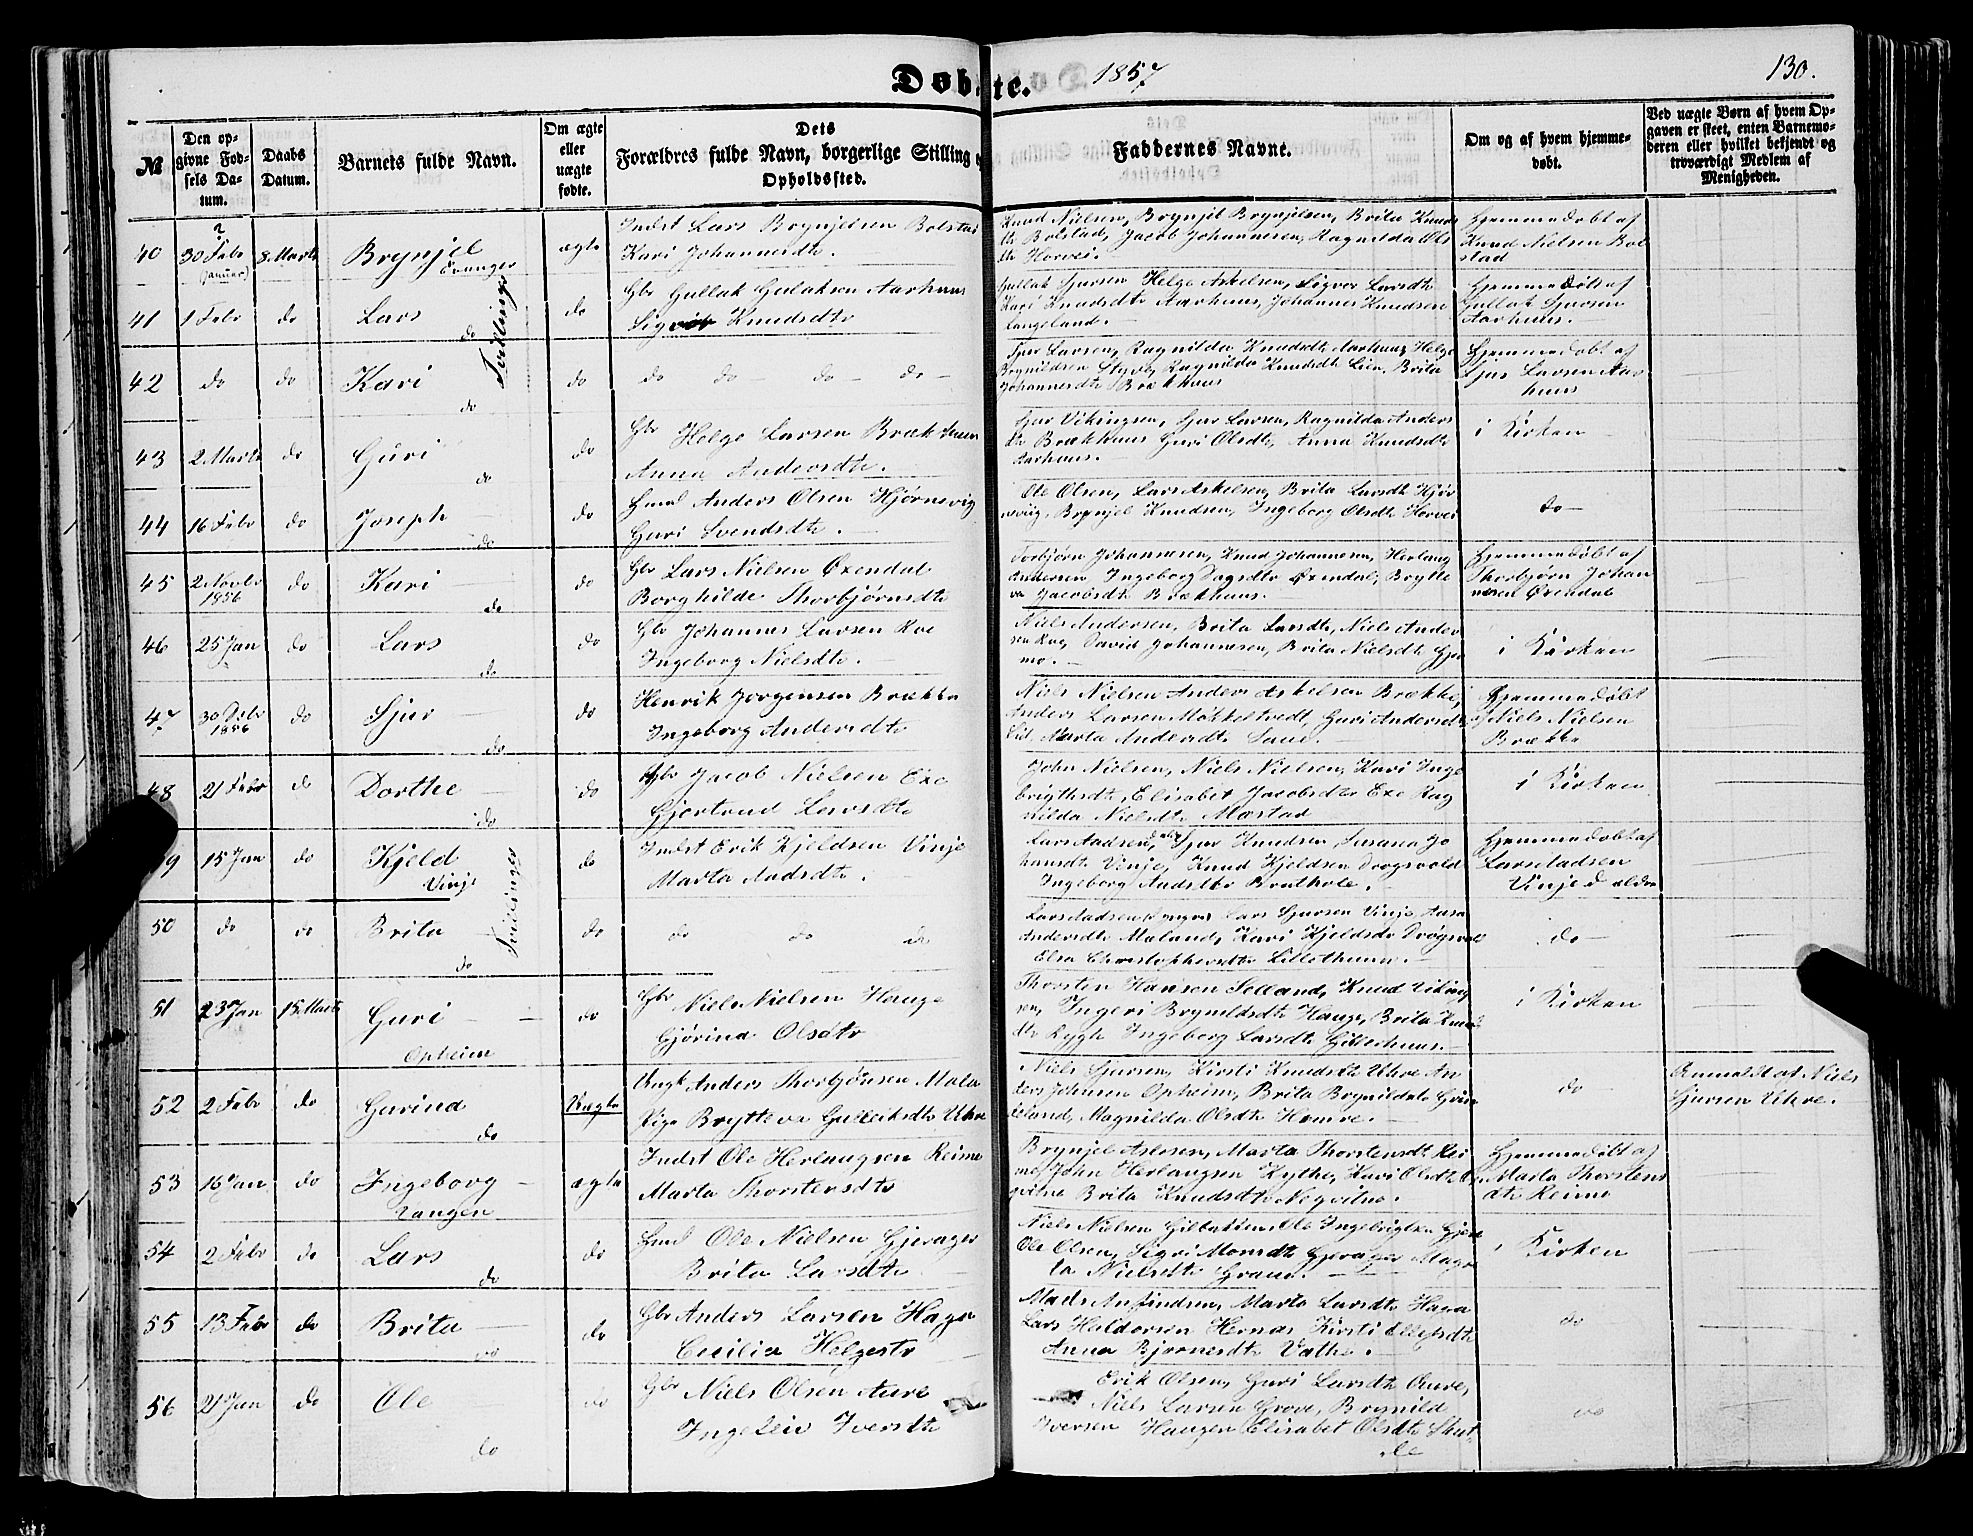 Døbte. 1857
130.
№
Den opgivne Fødsels Datum.
Daabs Datum.
Barnets fulde Navn.
Om ægte eller uægte fødte.
Dets Forældres fulde Navn, borgerlige Stilling og Opholdssted.
Faddernes Navne.
Om og af hvem hjemmedøbt.
Ved uægte Børn af hvem Opgaven er skeet, enten Barnemoderen eller hvilket bekjendt og troværdigt Medlem af Menigheden.
40 30 Febr (januar) 8 Marts Brynjel Evanger ægte
Indst Lars Brynjelsen Bolstad
Kari Johannesdtr.
Knud Nielsen, Brynjel Brynjelsen, Brita Knuds
dtr Bolstad, Jacob Johannesen, Ragnilda Ols
dtr Horvei.
Hjemmedøbt af
Knud Nielsen Bol
stad
41 1 Febr do Lars do Tvillinger do
Gbr Gullak Gulaksen Aarhuus
Knudsdtr
Gullak Sjursen Helge Askelsen, Sigvor Larsdtr
Kari Knudsdtr Aarhuus, Johannes Knudsen
Langeland.
Hjemmedøbt af
Gullak Sjursen
Aarhuus.
42 do do Kari do do
do do do do
Sjur Larsen, Ragnilda Knudsdtr Aarhuus, Helge
Brynildsen Styve, Ragnilda Knudsdtr Lien, Brita
Johannesdtr Brækhuus
Hjemmedøbt af
Sjur Larsen Aar
huus
43 2 Marts do Guri do do
Gbr Helge Larsen Brækhuus
Anna Andersdtr.
Sjur Vikingsen, Sjur Larsen, Ragnilda Anders
dtr Brækhuus Guri Olsdtr, Anna Knudsdtr
Aarhuus.
i Kirken
44 16 Febr do Joseph do do
Huusm Anders Olsen Hjørnevig
Guri Svendsdtr.
Ole Olsen, Lars Askelsen, Brita Larsdtr Hjør
nevig, Brynjel Knudsen, Ingeborg Olsdtr Horvei
do
45 2 Novbr 1856 do Kari do do
Gbr Lars Nielsen Øxendal
Borghilde Thorbjørnsdtr
Torbjørn Johannesen, Knud Johannesen, Herlaug
Andersen Ingeborg Dagsdtr Øxendal, Brytte
va Jacobsdtr Brækhuus.
Hjemmedøbt af
Thorbjørn Johan
nesen Øxendal
46 25 Jan do Lars do do
Gbr Johannes Larsen Roe
Ingeborg Nielsdtr.
Niels Andersen, Brita Larsdtr, Niels Ander
sen Roe, David Johannesen, Brita Nielsdtr Gjer
mo.
i Kirken
47 30 Debr 1856 do Sjur do do
Henrik Jørgensen Brække
Ingeborg Andersdtr
Niels Nielsen Anders Askelsen Brække,
Anders Larsen Møkkelstvedt, Guri Andersdtr
Lid, Marta Andersdtr Saue.
Hjemmedøbt
af Niels Nielsen
Brække
48 21 Febr do Dorthe do do
Gbr Jacob Nielsen Exe
Gjertrud Larsdtr
John Nielsen, Niels Nielsen, Kari Inge
brigtsdtr, Elisabet Jacobsdtr Exe Rag
nilda Nielsdtr Mæstad
i Kirken
49 15 Jan do Kjeld Vinje Tvillinger do
Indst Erik Kjeldsen Vinje
Marta Aadsdtr.
Lars Aadsen, d. eldr Sjur Knudsen Susana Jo
hansdtr Vinje, Knud Kjeldsen Drogsvold
Ingeborg Andsdtr Brathole.
Hjemmedøbt af
Lars Aadsen
Vinje d. ældre
50 do do Brita do do
do do do
Lars Aadsen d yngre Lars Sjursen Vinje, Aasa
Andersdtr Maland, Kari Kjeldsdtr Drøgsvold
Elsa Christophersdtr Lillethuun.
do
51 23 Jan 15 Marts Guri Opheim do
Gbr Niels Nielsen Hauge
Gjørina Olsdtr
Thorsten Hansen Selland, Knud Viking
sen, Ingeri Brynildsdtr Hauge, Brita Knuds
dtr Rygh Ingeborg Larsdtr Gillethuus.
i Kirken
52 2 Febr do Gurina do Uægte
Ungk Anders Thorbjørnsen Mala
Pige Brytteva Gullaksdtr Uhre
Niels Sjursen, Kirsti Knudsdtr Uhre An
ders Johnsen Opheim, Brita Brynildsdtr
Magnilda Olsdtr Homve.
do
Anmeldt af Niels
Sjursen Uhre.
53 16 Jan do Ingeborg Vangen ægte
Indst Ole Herlaugsen Reime
Marta Thorstensdtr
Brynjel Aslesen, Marta Thorstensdtr Rei
me, John Herlaugsen Kythe, Kari Olsdtr
Brita Knudsdtr Nøqvitne.
Hjemmedøbt af
Marta Thorstens
dtr Reime
54 2 Febr do Lars do do
Huusm Ole Nielsen Gjerager
Brita Larsdtr
Niels Nielsen Ole Ingebrigtsen
Ole Olsen, Sigri Monsdtr Gjerager Magre
ta Nielsdtr Graue.
i Kirken
55 13 Febr do Brita do do
Gbr Anders Larsen Haga
Cecilia Helgesdtr
Mads Anfindsen, Marta Larsdtr Haga
Lars Haldorsen Hernæs Kirsti Ellefsdtr
Anna Bjørnesdtr Vathe.
do
56 21 Jan do Ole do do
Gbr Niels Olsen Aure
Ingeleiv Iversdtr
Erik Olsen, Guri Larsdtr Aure,
Niels Larsen Grove, Brynild
Iversen Haugen Elisabet Olsdtr Skut
le
do